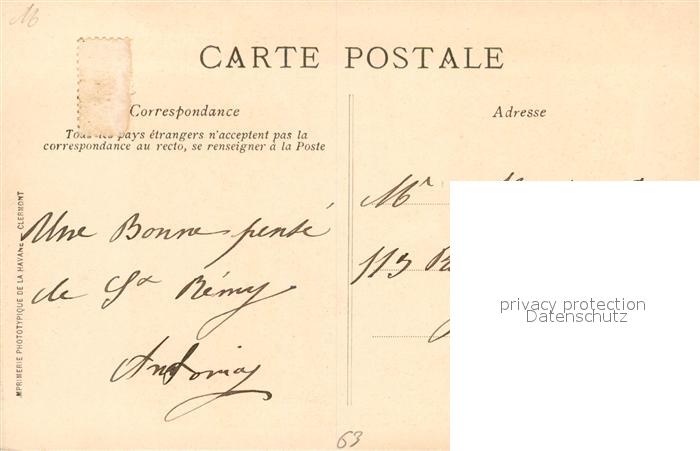 CARTE POSTALE
Correspondance
Tous les pays étrangers n'acceptent pas la
correspondance au recto, se renseigner à la Poste
Une Bonne pensé
de St Rémy
Adresse
Mr
113
IMPRIMERIE PHOTOTYPIQUE DE LA HAVANE CLERMONT
privacy protection
Datenschutz
63